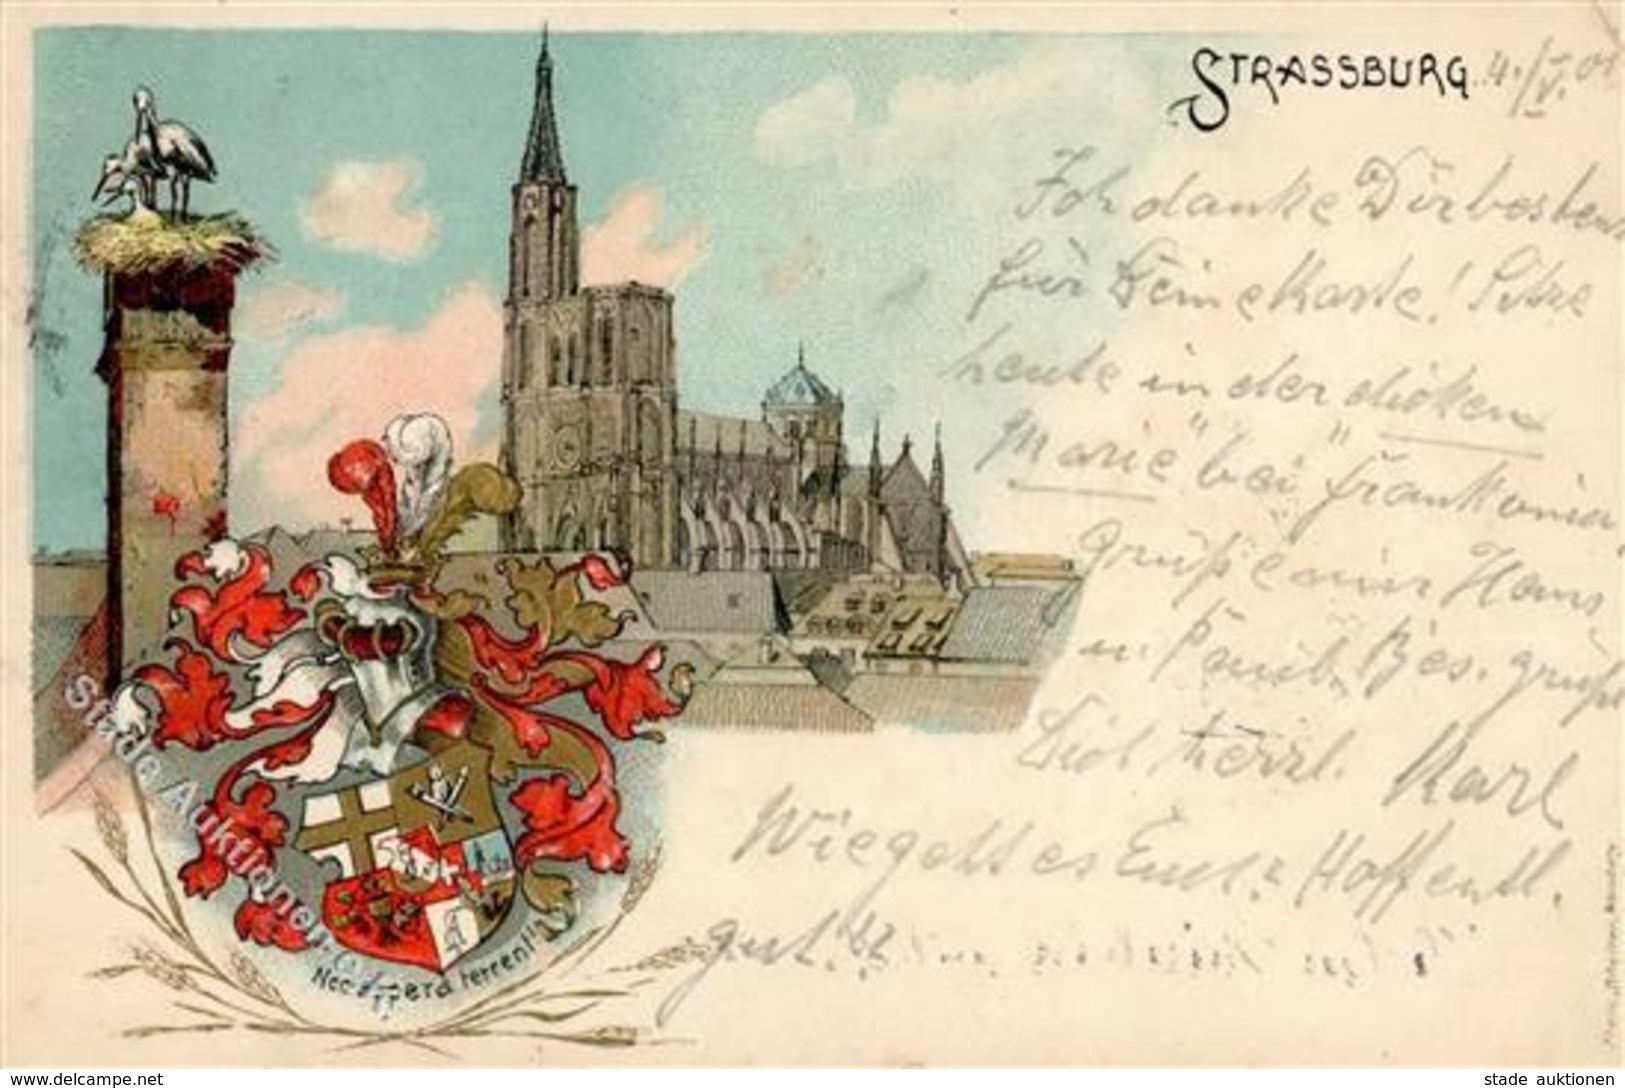 STRASSBURG. 4./V. 01
Ich danke Dir bestens
für Deine Karte! Sitze
heute in der dicken
Marie" bei "Frankonia
Grüße mir Hans
u. Famil. Bes. grüßt
Dich herzl. Karl
Wie geht es Euch? Hoffentl.
gut.
Nec aspera terrent!
Stade Auktionen
www.delcampe.net
stade auktionen